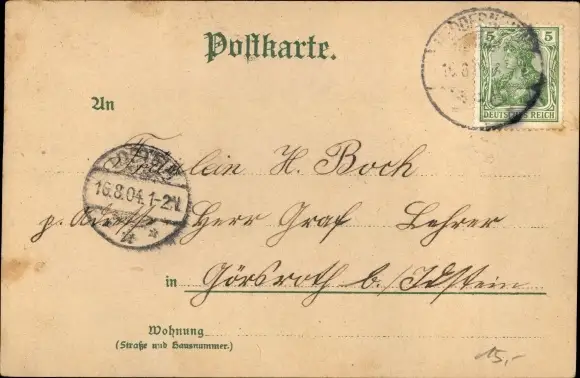 Postkarte.
5 5
DEUTSCHES REICH
An
Fräulein H. Boch
16.8.04. 1-2N.
p. Herrn Graf Lehrer
in Görsroth b./Idstein
Wohnung
(Straße und Hausnummer.)
15,-